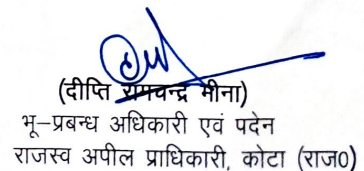 (दीप्ति रामचन्द्र मीना)
भू-प्रबन्ध अधिकारी एवं पदेन
राजस्व अपील प्राधिकारी, कोटा (राज०)